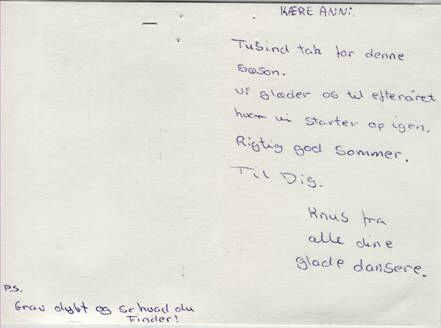 KÆRE ANNI.
Tusind tak for denne
sæson.
Vi glæder os til efteråret
hvor vi starter op igen.
Rigtig god sommer.
Til Dig.
Knus fra
alle dine
glade dansere.
P.S.
Grav dybt og se hvad du
Finder!